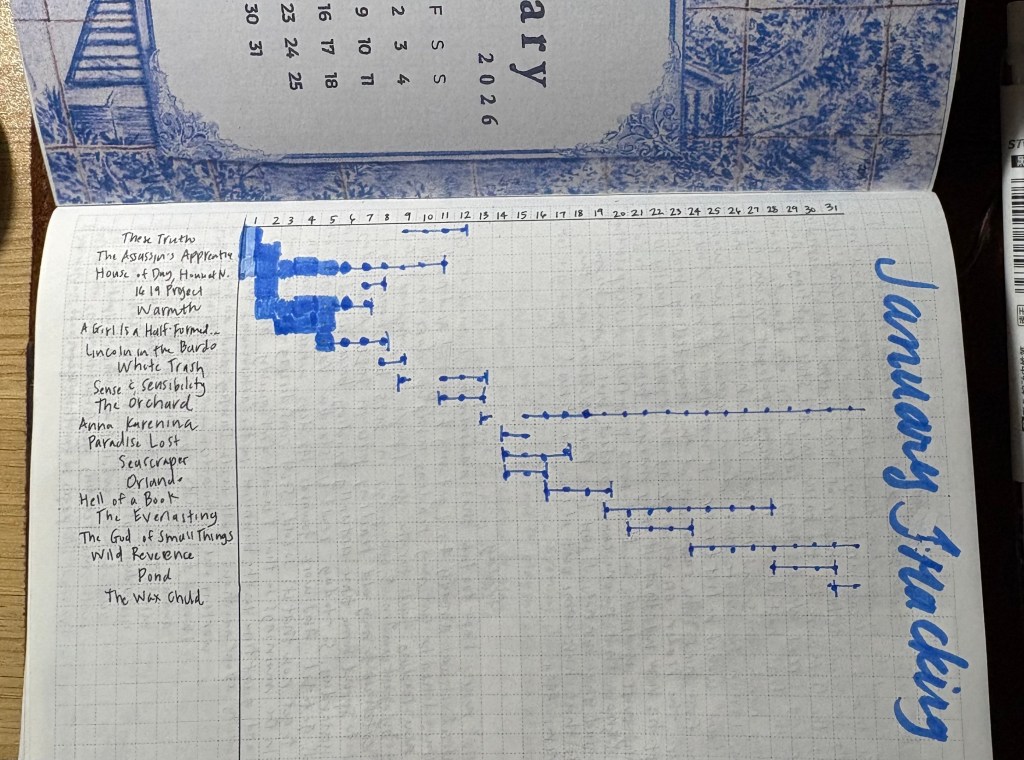 ary
2026
F S S
2 3 4
9 10 11
16 17 18
23 24 25
30 31
January Tracking
1 2 3 4 5 6 7 8 9 10 11 12 13 14 15 16 17 18 19 20 21 22 23 24 25 26 27 28 29 30 31
These Truth
The Assassin's Apprentice
House of Day, House of N.
1619 Project
Warmth
A Girl Is a Half-Formed...
Lincoln in the Bardo
White Trash
Sense & Sensibility
The Orchard
Anna Karenina
Paradise Lost
Seascraper
Orlando
Hell of a Book
The Everlasting
The God of Small Things
Wild Reverence
Pond
The Wax Child